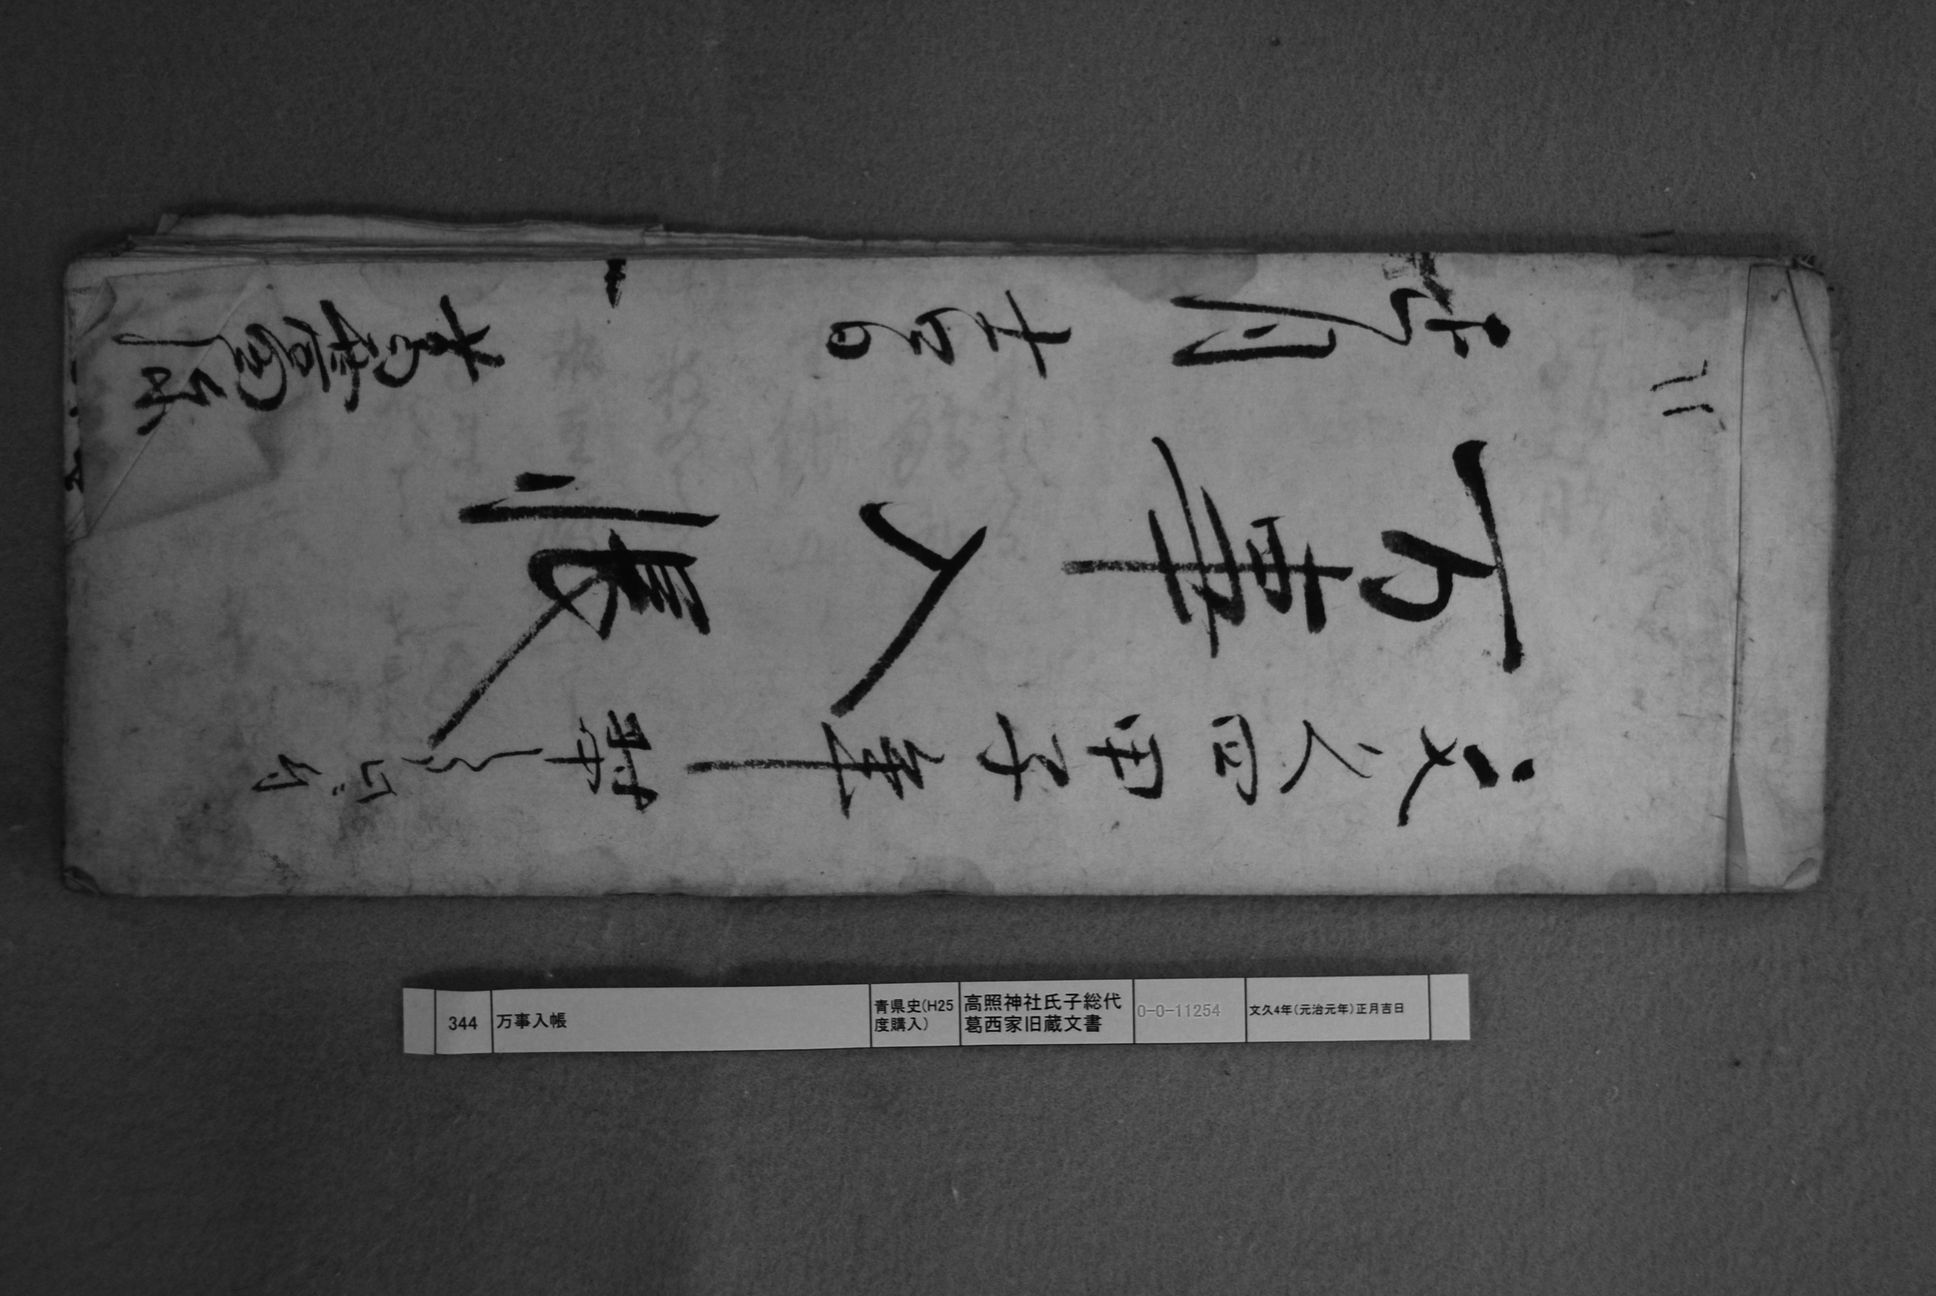 文久四甲子年
万事入帳
正月吉日
344
万事入帳
青県史(H25
度購入)
高照神社氏子総代
葛西家旧蔵文書
0-0-11254
文久4年(元治元年)正月吉日